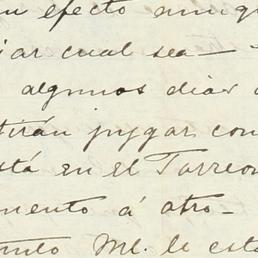 en efecto aunq
iar cual sea —
algunos dias
tirán juzgar con
stá en el Torreon
mento á otro —
unto Ml. le esta